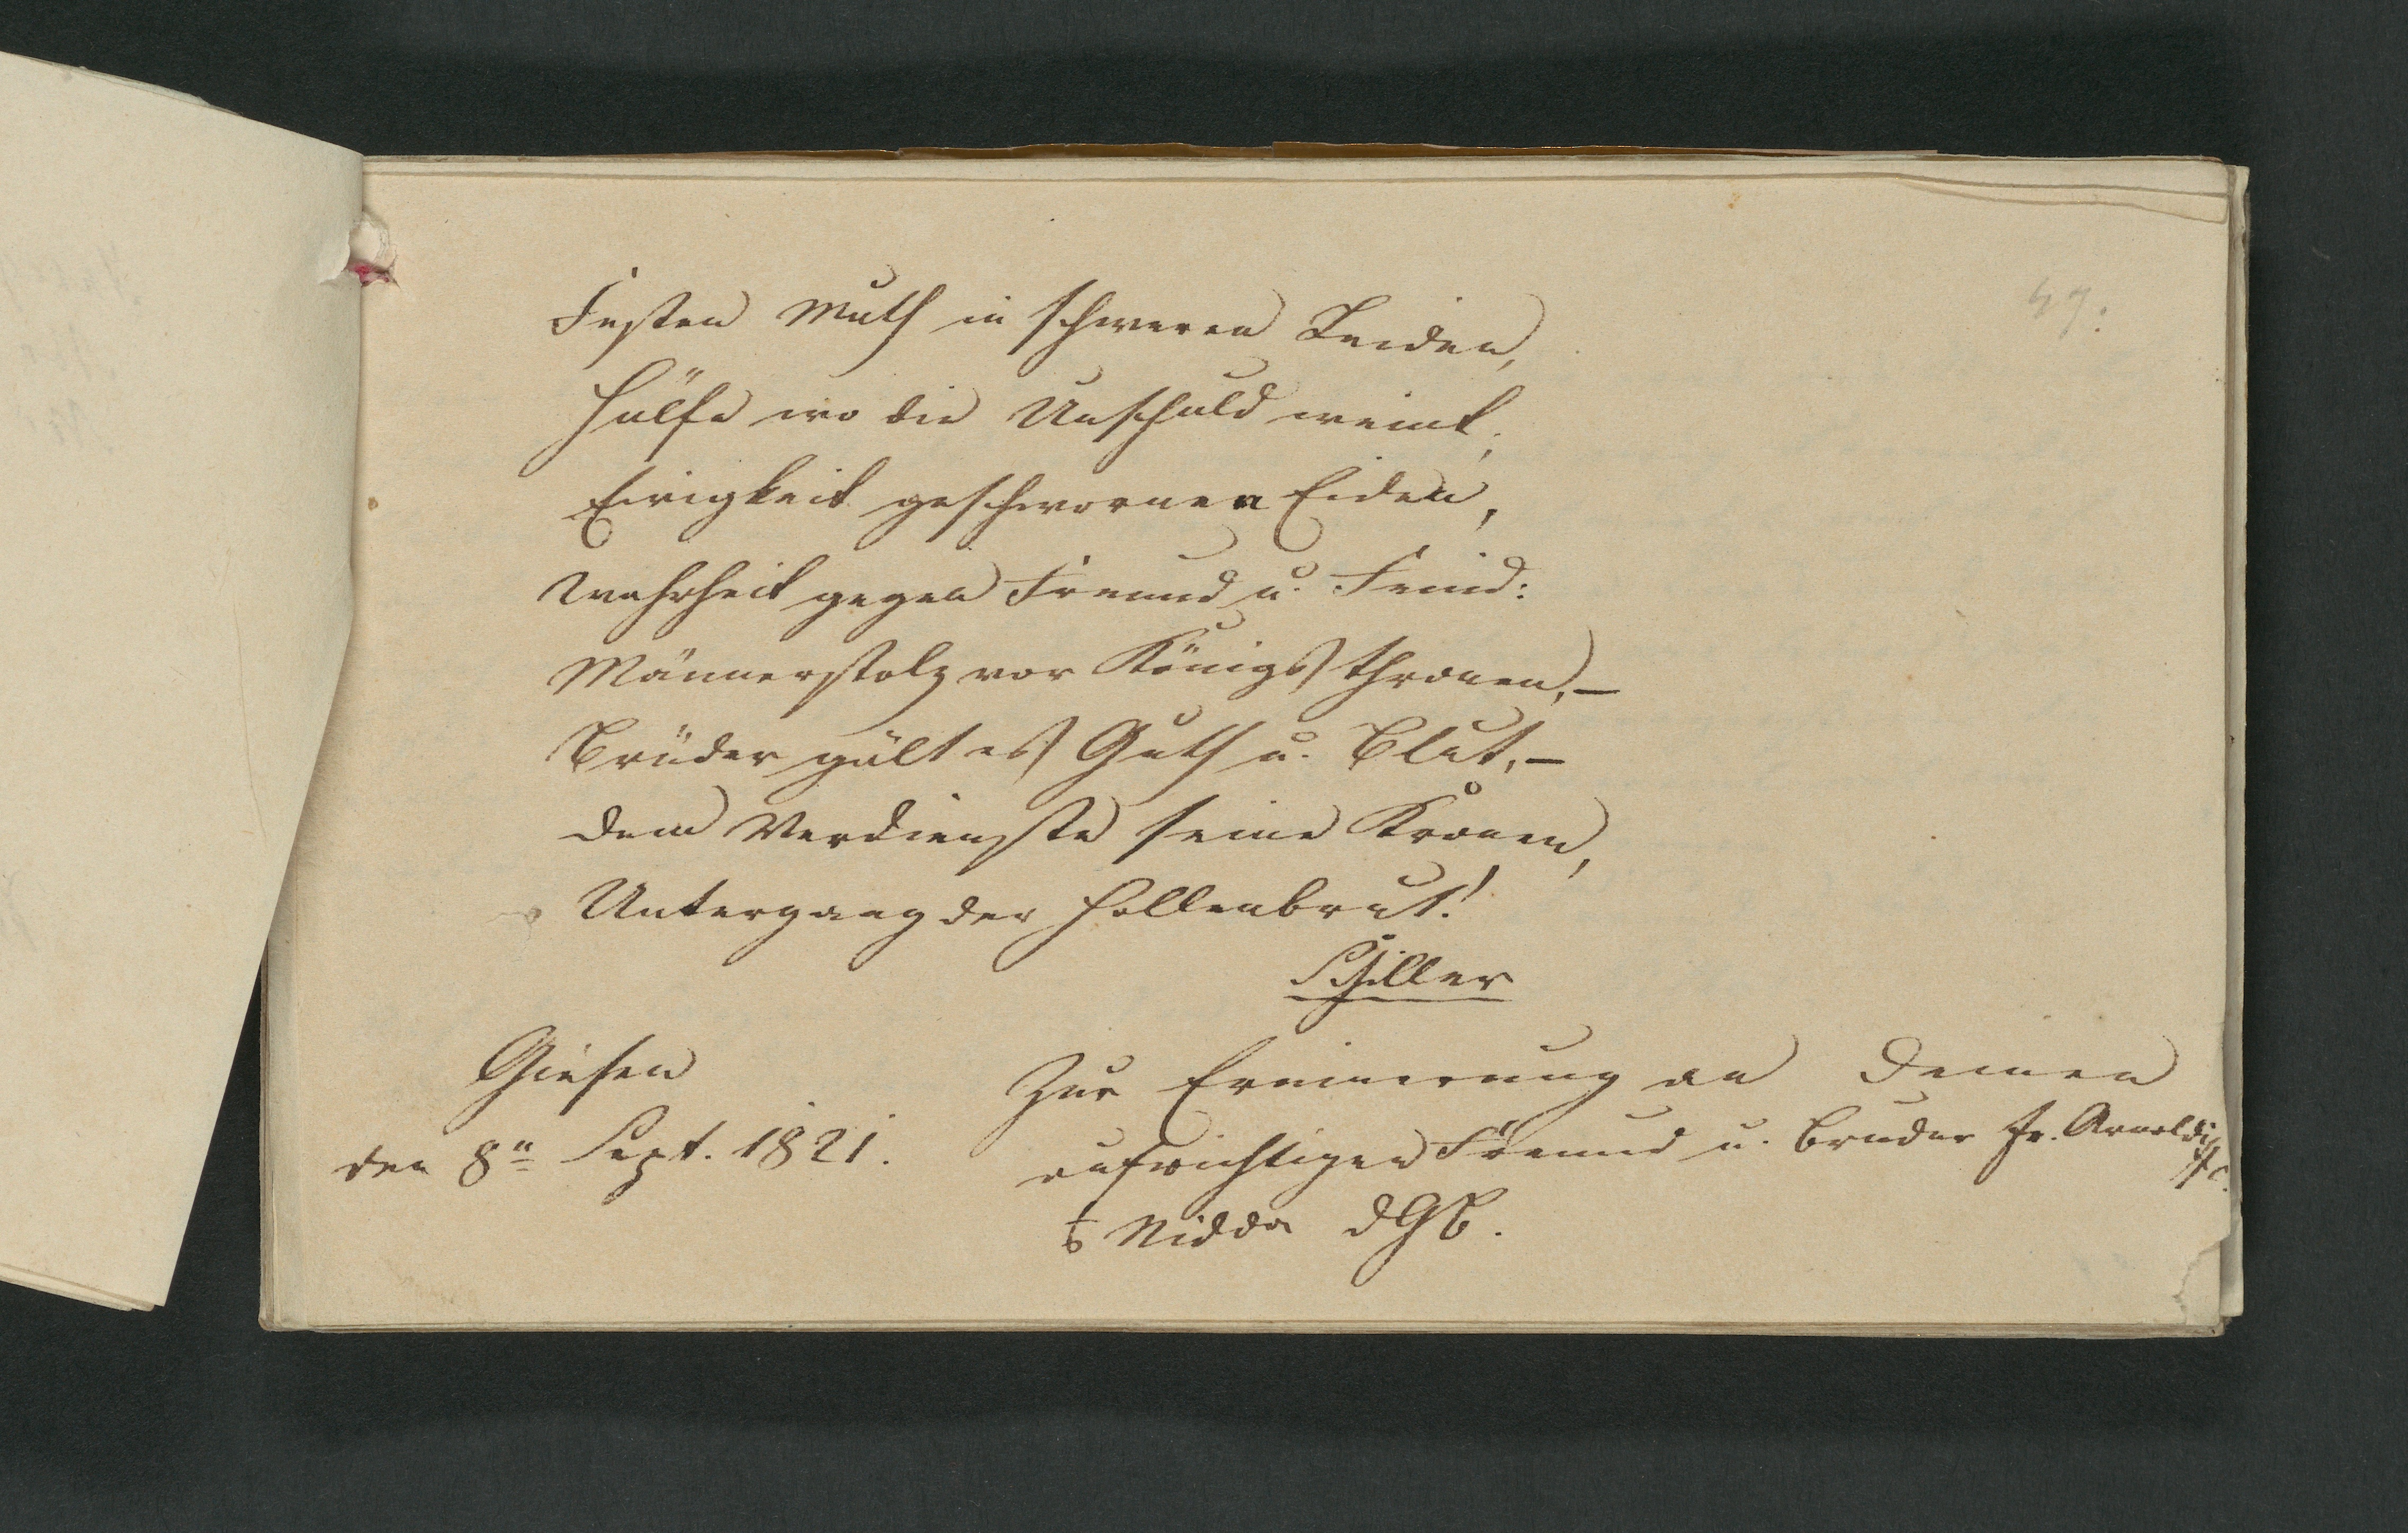 47.
Festen Muth in schweren Leiden,
Hülfe wo die Unschuld weint,
Ewigkeit geschwornen Eiden,
Wahrheit gegen Freund u. Feind:
Männerstolz vor Königsthronen, –
Brüder gält es Guth u. Blut, –
dem Verdienste seine Kronen,
Untergang der Höllenbrut!
Schiller
Giesen
den 8n Sept. 1821.
Zur Erinnerung an Deinen
aufrichtigen Freund u. Bruder Fr. Arnoldi
Nidda